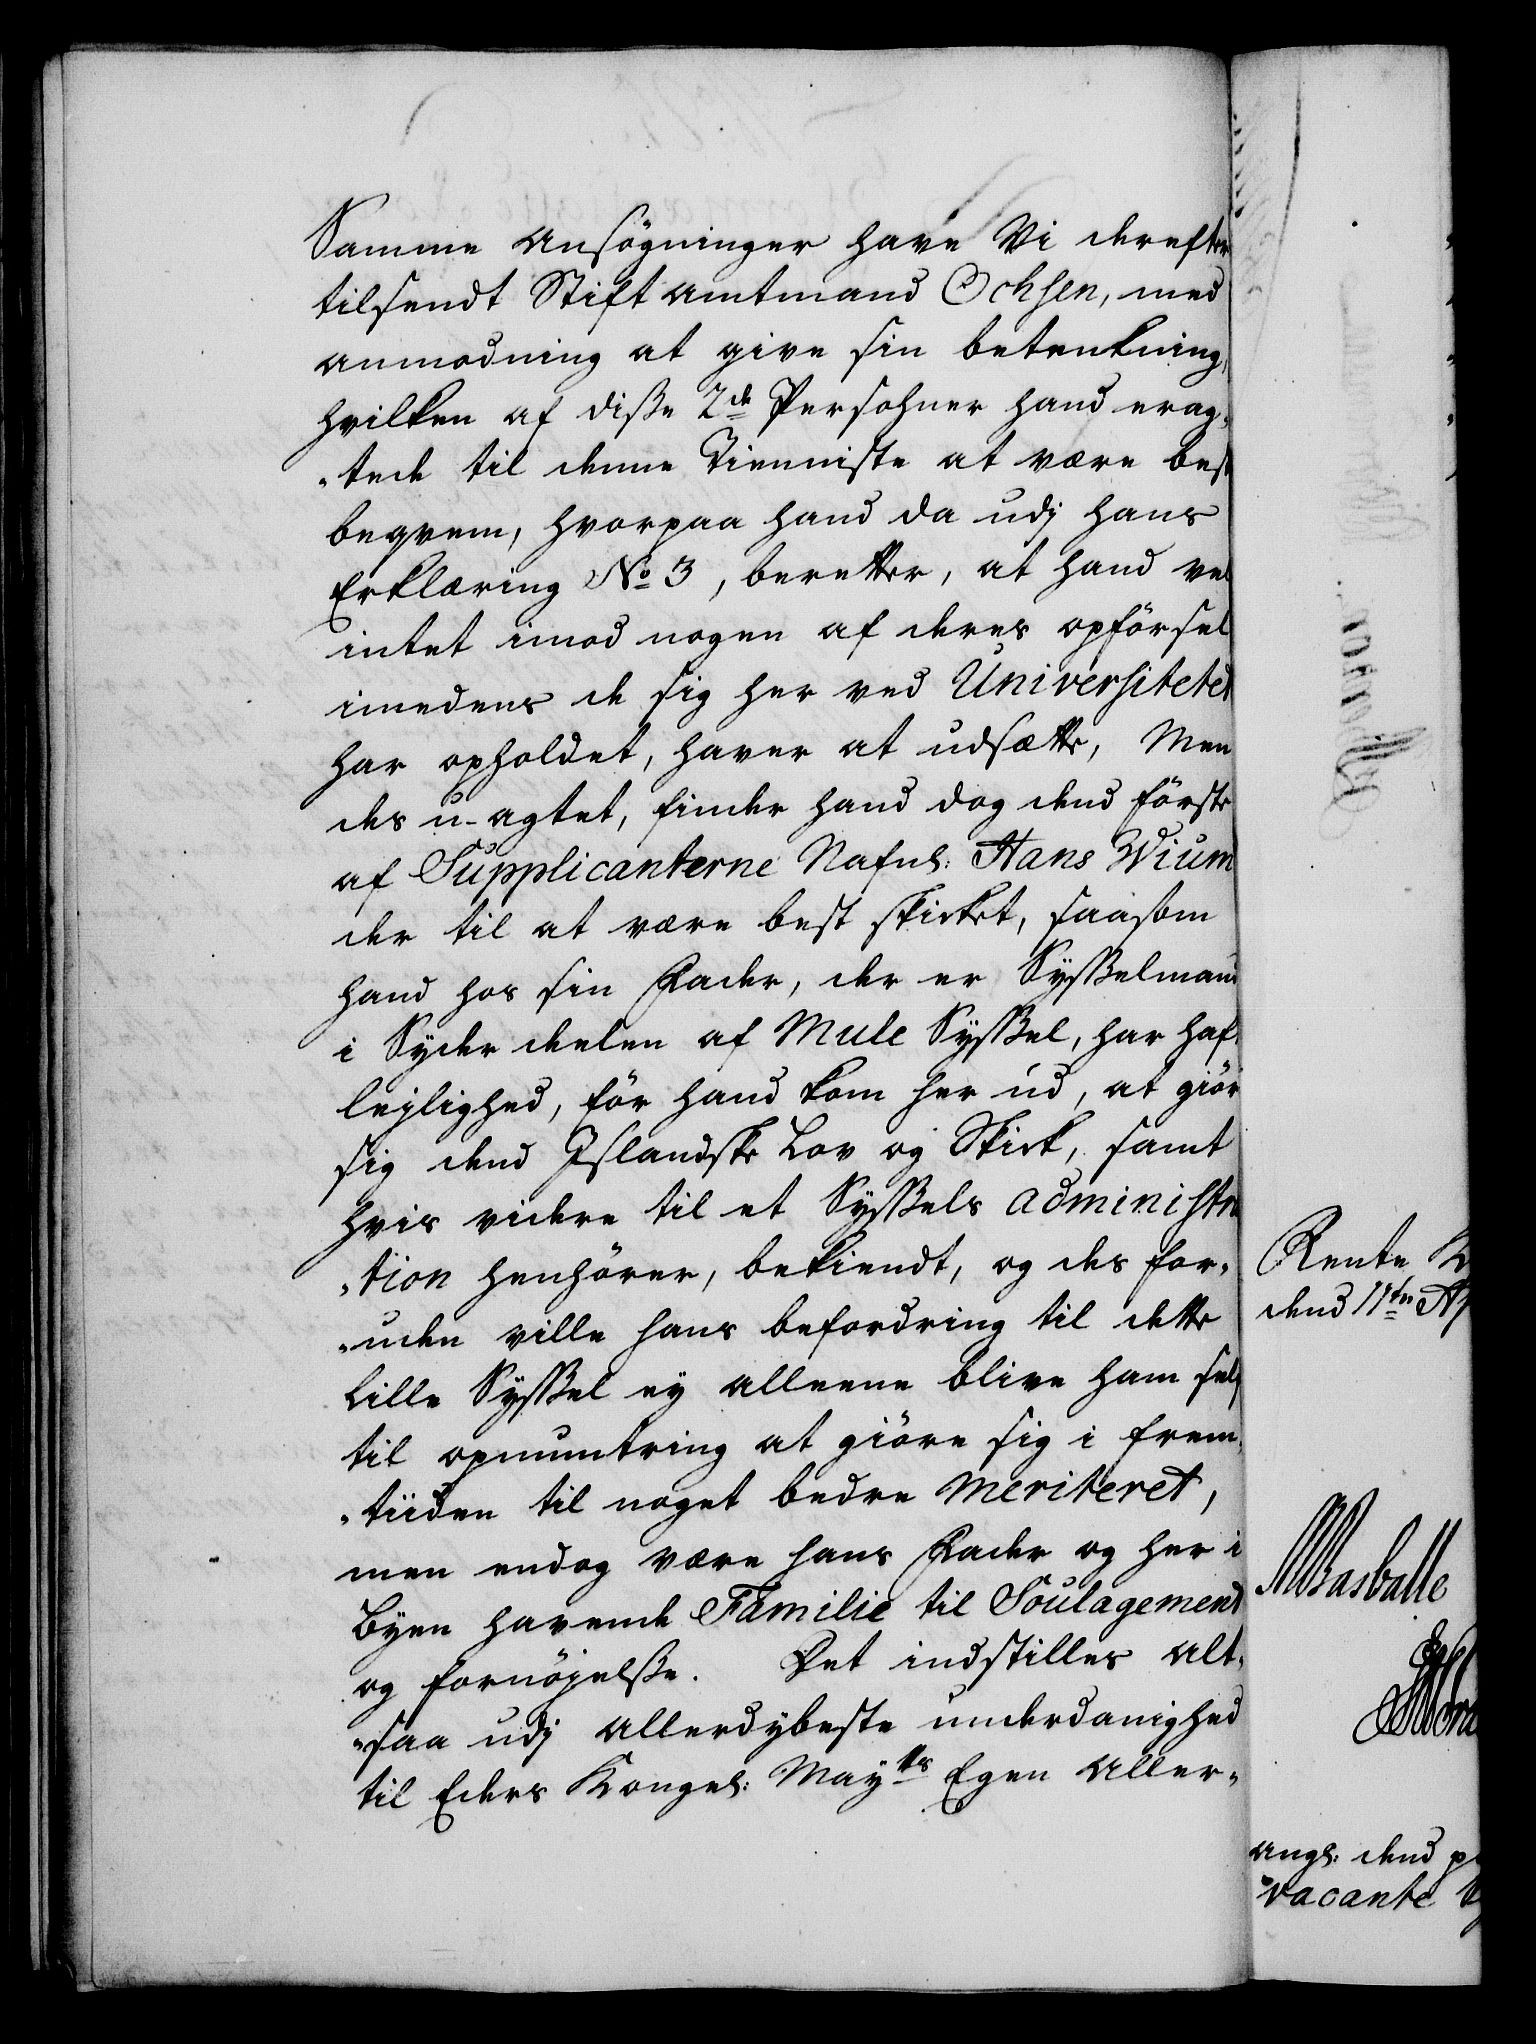 Samme Ansögninger have Vi derefter
tilsendt Stiftamtmand Ochsen, med
anmodning at give sin betenkning,
hvilken af diße 2de Persohner hand erag-
"tede til denne Tienniste at være best
beqvem, hvorpaa hand da udj hans
Erklæring No 3, beretter, at hand vel
intet imod nogen af deres opförsel
imedens de sig her ved Universitetet
har opholdet, haver at udsætte, Men
des u-agtet, finder hand dog dend förste
af Supplicanterne Nafnl: Hans Wium
der til at være best skicket, saasom
hand hos sin Fader, der er Sysselmand
i Syder deelen af Mule Syssel, har haft
lejlighed, för hand kom her ud, at giöre
sig dend Islandske Lov og Skick, samt
hvis videre til et Syssels administra
"tion henhörer, bekiendt, og des for-
"uden ville hans befordring til dette
Lille Syssel ey alleene blive ham selv
til opmuntring at giöre sig i frem-
"tiiden til noget bedre meriteret,
men endog være hans Fader og her i
Byen havende Familie til Soulagement
og fornöjelße. Det indstilles alt-
"saa udj allerdybeste underdanighed
til Eders Kongel: Mayts Egen Aller-
Rente
dend 11te
angl: dend
vacante